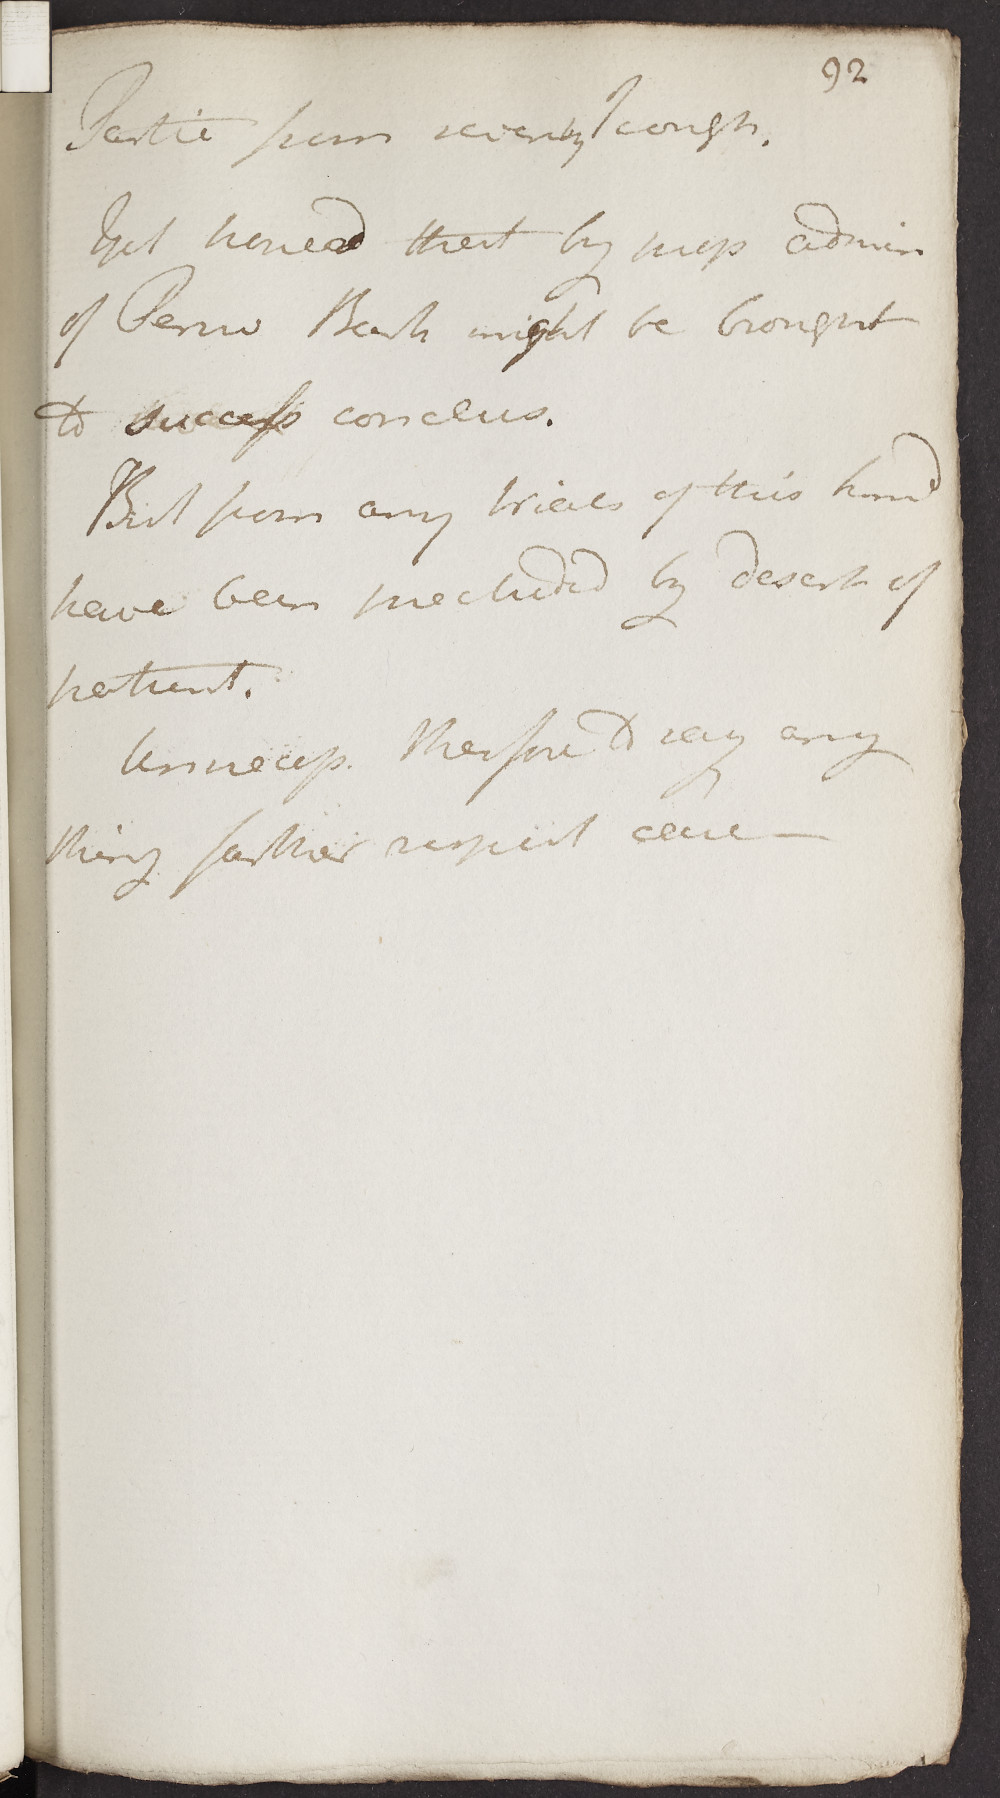 92
Partic from severity of cough.
Yet hoped that by prop admin
of Peruv Bark might be brought
to success conclus.
But from any trials of this kind
have been precluded by desert of
patient.
Unnecess. therefore to say any
thing farther respect case —